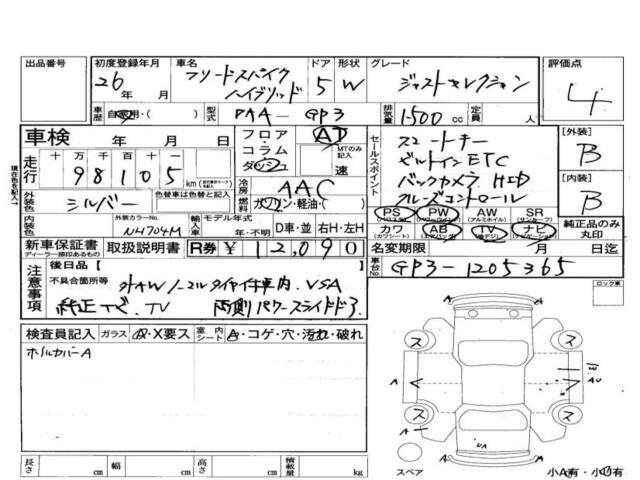 出品番号
初度登録年月 26 年 月
車名 フリードスパイク ハイブリッド
ドア 5
形状 W
グレード ジャストセレクション
評価点 4
車歴 自家用・( )
型式 DAA-GP3
排気量 1500 cc
定員 人
車検 年 月 日
フロア・コラム ダッシュ
AT
MTのみ記入 速
セールスポイント
スマートキー
ビルトインETC
バックカメラ HID
クルーズコントロール
[外装] B
[内装] B
現在色を記入→
走行 十 万 千 百 十 一
98105 km
冷房 AAC
燃料 ガソリン・軽油・( )
外装色 シルバー
色替車は色替前色と記入
内装色
外装カラーNo. NH704M
輸入車 モデル年式 年・不明
D車・並 右H・左H
PS (パワーステアリング) PW (パワーウィンドウ) AW (アルミホイル) SR (サンルーフ)
カワ (カワシート) AB (エアバッグ) TV (地デジ) ナビ (ナビゲーション)
純正品のみ丸印
新車保証書 ディーラー捺印あるもの
取扱説明書
R券 ¥12,090
名変期限 月 日迄
車台No. GP3-1205365
注意事項
後日品【 】
不具合箇所等 外AW ノーマルタイヤ4本車内、VSA
純正ナビ、TV 両側パワースライドドア
ロック票
検査員記入 ガラス A・X要ス 室内シート A・コゲ・穴・汚れ・破れ
ホイルカバーA
ス ス
A A W AU
ス ス
A UA A
長さ cm 幅 cm 高さ cm 積載量 kg
スペア
小A有・小U有